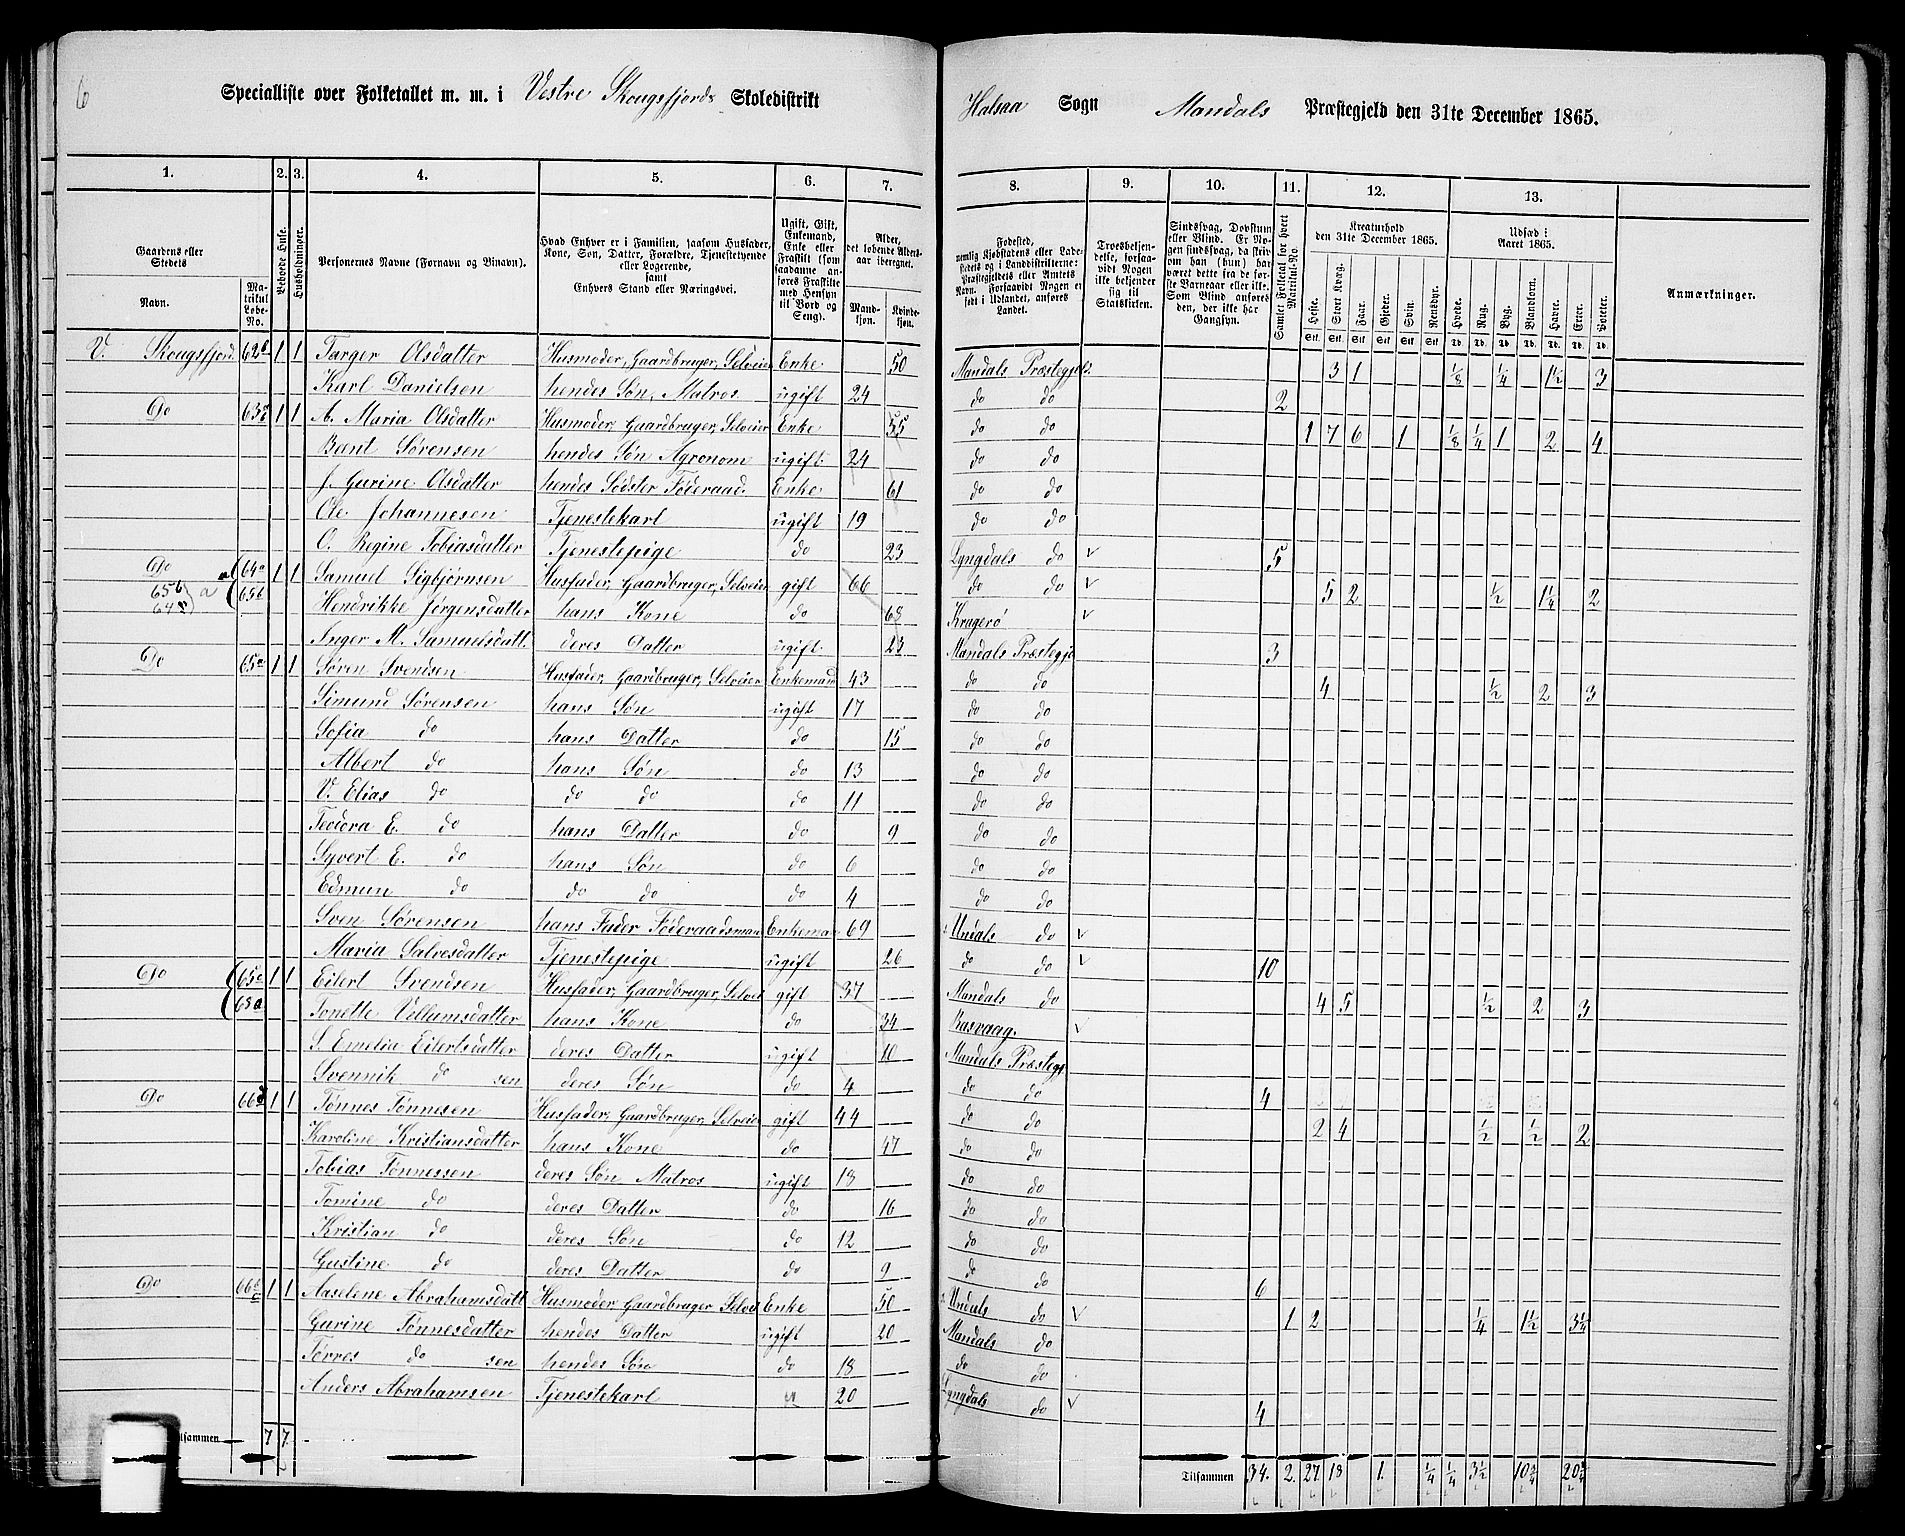 6
Specialliste over Folketallet m. m. i Vestre Skougsfjords Skoledistrikt Halsaa Sogn Mandals Præstegjeld den 31te December 1865.
1. 2. 3. 4. 5. 6. 7. 8. 9. 10. 11. 12. 13.
Gaardens eller Stedets
Navn. Matrikul Løbe-No.
Beboede Huse.
Husholdninger.
Personernes Navne (Fornavn og Binavn).
Hvad Enhver er i Familien, saasom Husfader, Kone, Søn, Datter, Forældre, Tjenestetyende eller Logerende, samt Enhvers Stand eller Næringsvei.
Ugift, Gift, Enkemand, Enke eller Fraskilt (som saadanne anføres Fraskilte med Hensyn til Bord og Seng).
Alder, det løbende Alders-aar iberegnet.
Mandkjøn. Kvindekjøn.
Fødested, nemlig Kjøbstadens eller Ladestedets og i Landdistrikterne: Præstegjeldets eller Amtets Navn. Forsaavidt Nogen er født i Udlandet, anføres Landet.
Troesbekjendelse, forsaavidt Nogen ikke bekjender sig til Statskirken.
Sindssvag, Døvstum eller Blind. Er Nogen sindssvag, da skrives om han (hun) har været dette fra de første Barneaar eller ikke. Som Blind anføres den, der ikke har Gangsyn.
Samlet Folketal for hvert Matrikul-No.
Kreaturhold den 31te December 1865.
Heste. Stort Kvæg. Faar. Gjeder. Svin. Rensdyr.
Udsæd i Aaret 1865.
Hvede. Rug. Byg. Blandkorn. Havre. Erter. Poteter.
Anmærkninger.
V. Skougsfjord 62 1 1 Targer Olsdatter Husmoder, Gaardbruger, Selveier Enke 50 Mandals Præstegjel. 3 1 1/8 1/4 1½ 3
Karl Danielsen hendes Søn, Matros ugift 24 do do 2
Do 63 1 1 A. Maria Olsdatter Husmoder, Gaardbruger, Selveier Enke 55 do do 1 7 6 1 1/8 1/4 1 2 4
Bent Sørensen hendes Søn Agronom ugift 24 do do
J. Gurine Olsdatter hendes Sødster Føderaad. Enke 61 do do
Ole Johannesen Tjenestekarl ugift 19 do do
O. Regine Tobiasdatter Tjenestepige do 23 Lyngdals do 5
Do 64a 1 1 Samuel Sigbjørnsen Husfader, Gaardbruger, Selveier gift 66 do do 5 2 ½ 1¼ 2
65b 65b Hendrikke Jørgensdatter hans Kone do 68 Kragerø
Inger M. Samuelsdatt. deres Datter ugift 23 Mandals Præstegje 3
Do 65a 1 1 Søren Svendsen Husfader, Gaardbruger, Selveier Enkemand 43 do do 4 ½ 2 3
Simund Sørensen hans Søn ugift 17 do do
Sofia do hans Datter do 15 do do
Albert do hans Søn do 13 do do
V. Elias do do do do 11 do do
Teodora E. do hans Datter do 9 do do
Syvert E. do hans Søn do 6 do do
Edmun do do do do 4 do do
Sven Sørensen hans Fader Føderaadsmand Enkeman 69 Undals do
Maria Salvesdatter Tjenestepige ugift 26 do do 10
Do 65c 1 1 Eilert Svendsen Husfader, Gaardbruger, Selvei gift 37 Mandals do 4 5 ½ 2 3
68a Tonette Villumsdatter hans Kone do 34 Rasvaag.
S. Emelia Eilertsdatter deres Datter ugift 10 Mandals Præstegj
Svennik do sen deres Søn do 4 do do 4
Do 66 1 1 Tønnes Tønnesen Husfader, Gaardbruger, Selveier gift 44 do do 2 4 ½ ½ 2
Karoline Kristiansdatter hans Kone do 47 do do
Tobias Tønnessen deres Søn Matros ugift 18 do do
Tomine do deres Datter do 16 do do
Kristian do deres Søn do 12 do do
Gustine do deres Datter do 9 do do 6
Do 66 1 1 Aaselene Abrahamsdatt Husmoder, Gaardbruger Selvei Enke 50 Undals do 1 2 1/4 1½ 3¼
Gurine Tønnesdatter hendes Datter ugift 20 Mandals do
Tørres do sen hendes Søn do 18 do do
Anders Abrahamsen Tjenestekarl 20 Lyngdals do 4
Tilsammen 7 7 Tilsammen 34. 2. 27 18 1. ¼ ¼ 3½ 10¾ 20¼